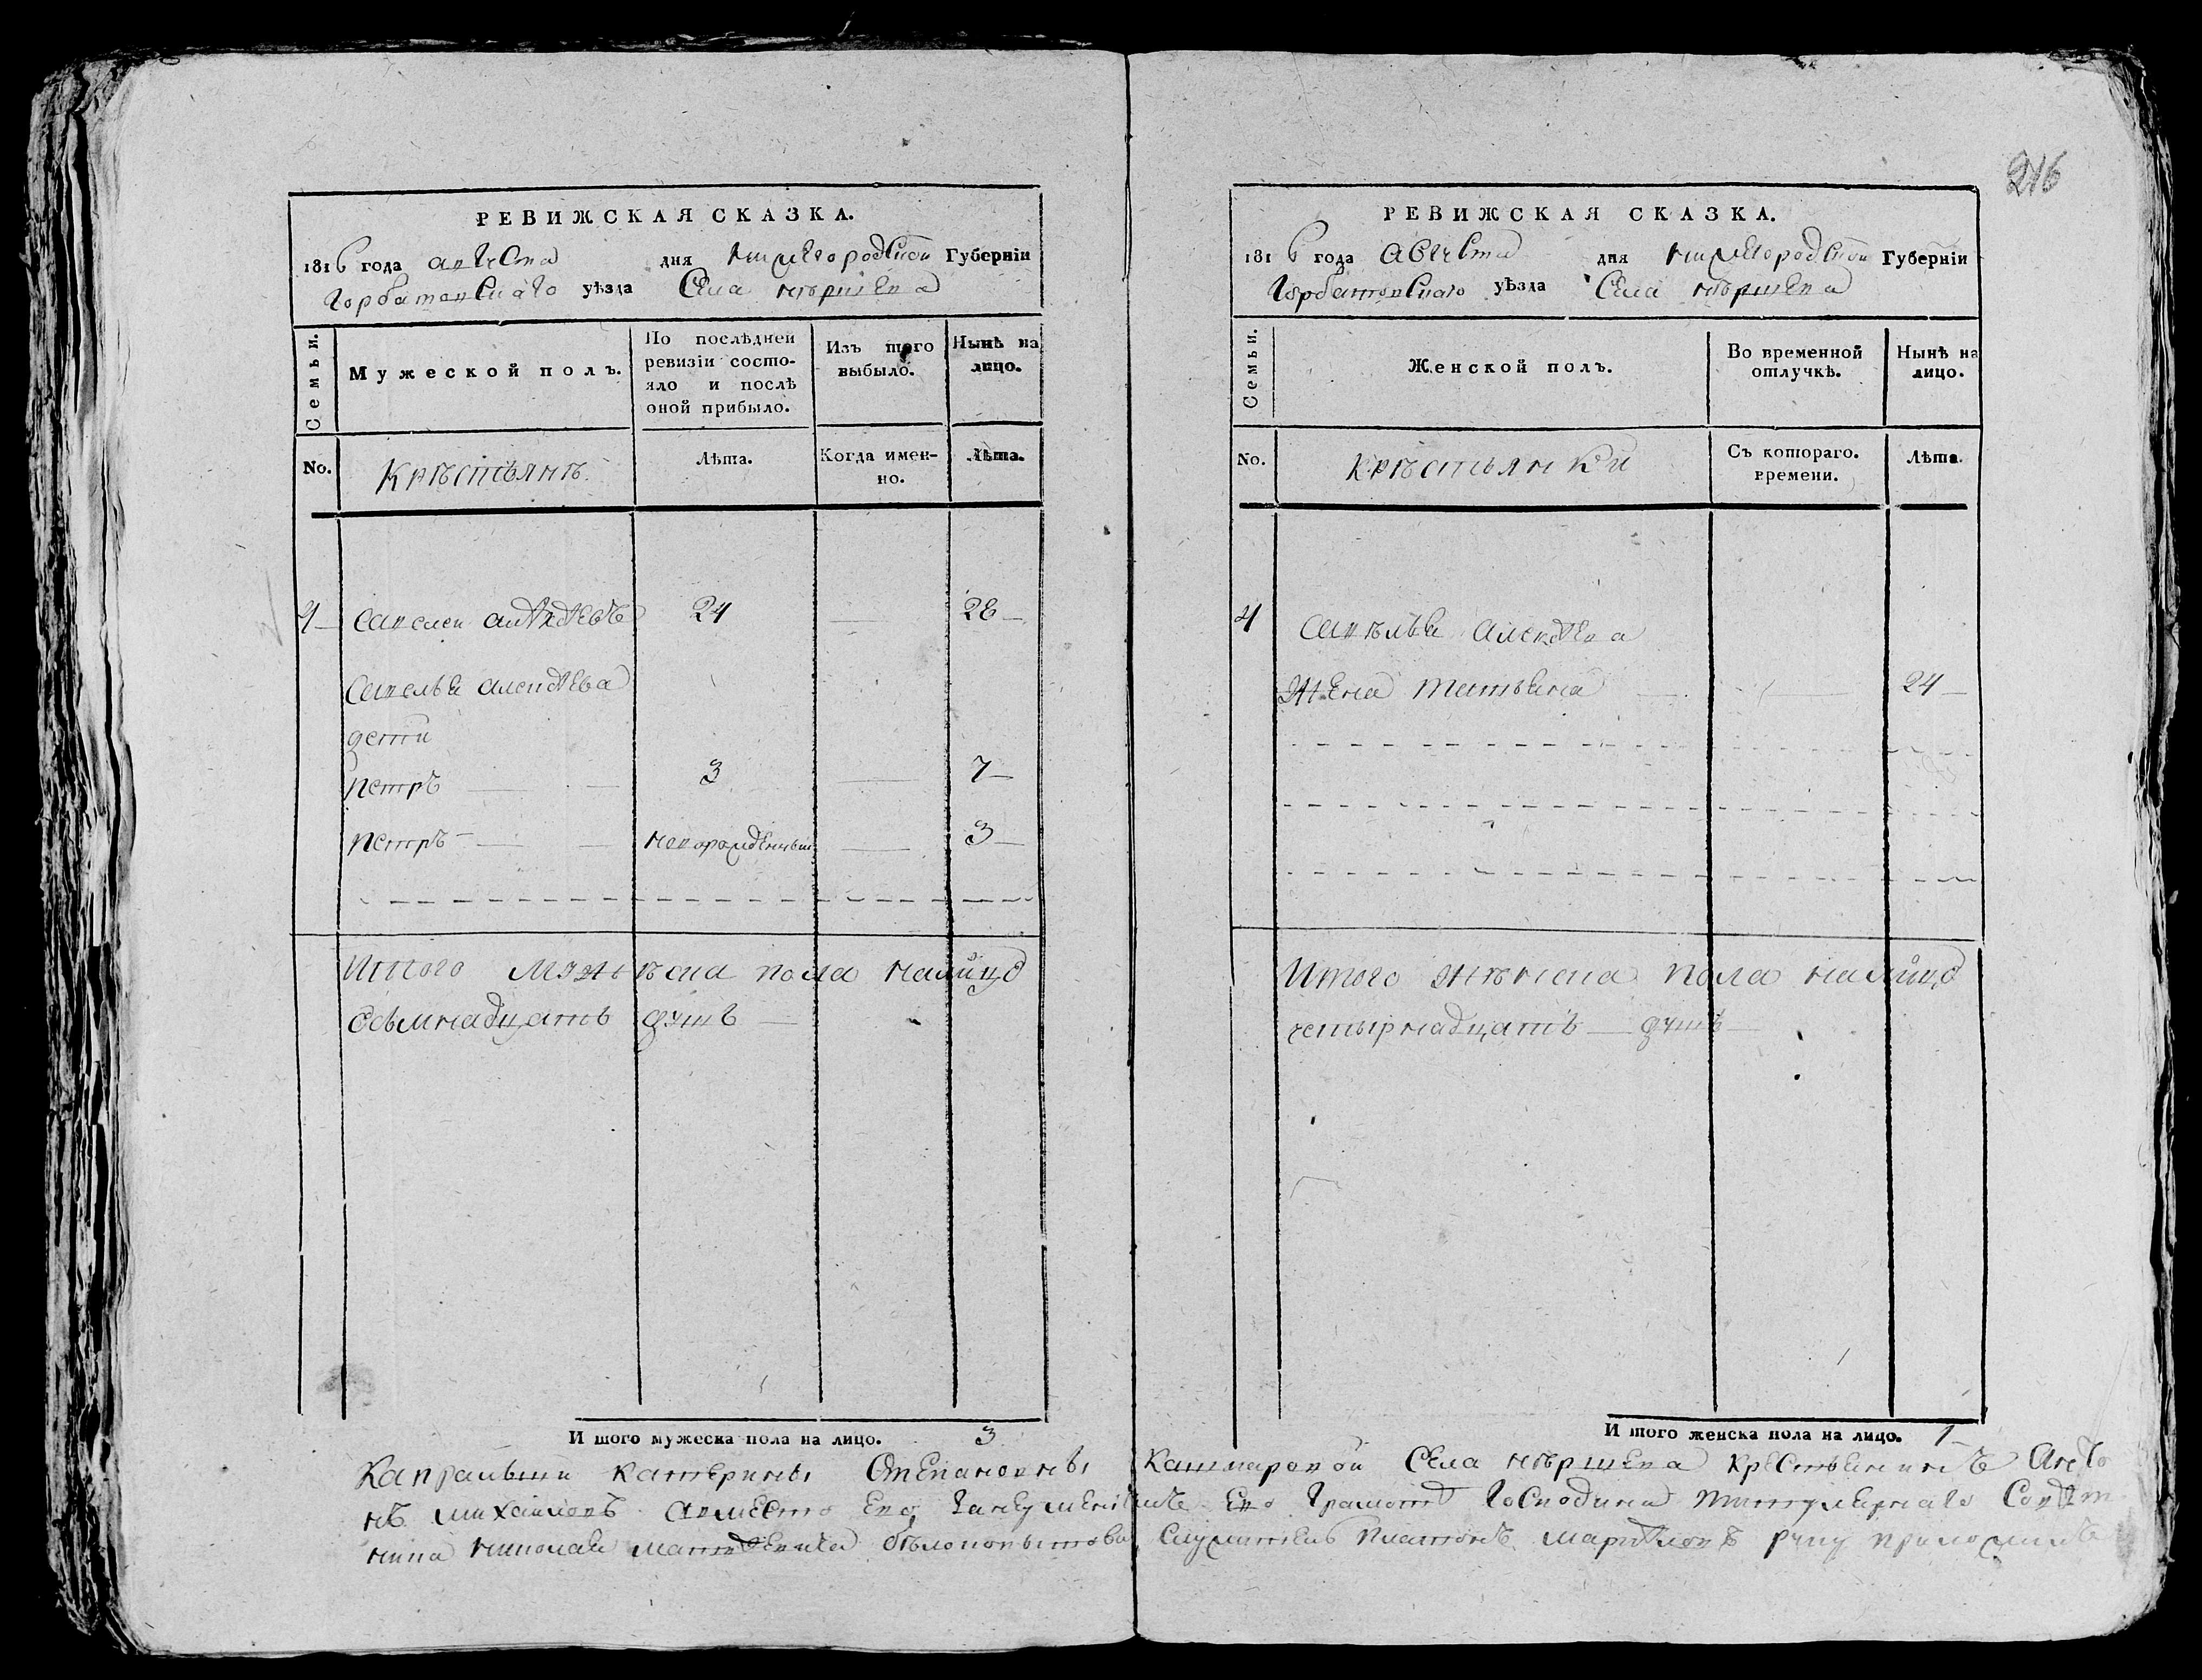 РЕВИЖСКАЯ СКАЗКА.
1816 года августа дня нижегородской Губерніи
Горбатовскаго уѣзда Села мѣршева
Семьи.
Мужеской полъ.
По послѣдней ревизіи состояло и послѣ оной прибыло.
Изъ того выбыло.
Нынѣ на лицо.
No.
Крѣстьянѣ
Лѣта.
Когда именно.
Лѣта.
4 савелеи алѣксѣевъ 24 28
Савелья алексѣева
дети
петръ 3 7
петръ новорожденныи 3
Итого мужѣска пола налицо
осьмнадцать душъ
И того мужеска пола на лицо. 3
216
РЕВИЖСКАЯ СКАЗКА.
1816 года августа дня нижегородской Губерніи
Горбатовскаго уѣзда Села мѣршева
Семьи.
Женской полъ.
Во временной отлучкѣ.
Нынѣ на лицо.
No.
крѣстьянки
Съ котораго. времени.
Лѣта.
4 савѣлья алексѣева
жена татьяна 24
Итого жѣнска пола налицо
четырнадцать душъ
И того женска пола на лицо. 1
Капральши катерины Степановны Кашкаровой Села мѣршева крестьянинъ Анто
нъ михаиловъ авместо Его занеуменіемъ Его Грамотѣ Господина титулярнаго Совѣт
ника николая матвѣевича бѣлокопытова служитель платонъ руку приложилъ